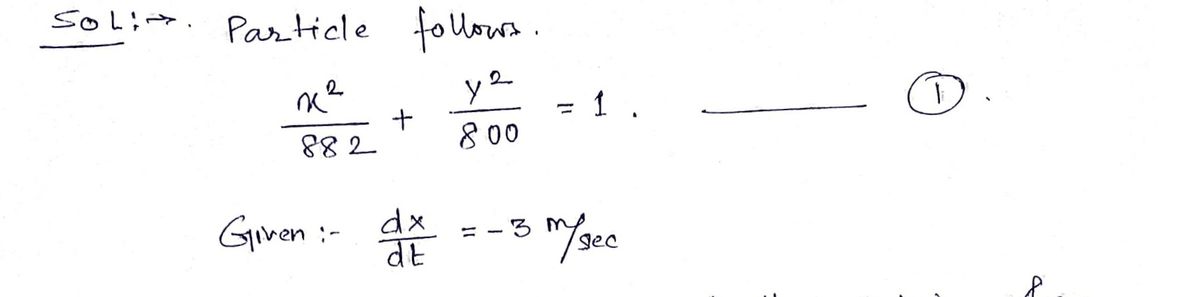 SOL:→. Particle follows.
x²/882 + y²/800 = 1. ——— ①.
Given :- dx/dt = -3 m/sec